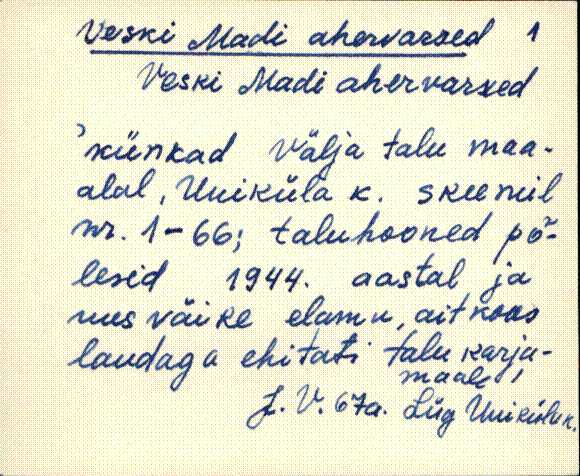 Veski Madi ahervarred 1
Veski Madi ahervarred
'künkad Välja talu maa-
alal, Uniküla k. skeemil
nr. 1-66; taluhooned põ-
lesid 1944. aastal ja
uus väike elamu, ait koos
laudaga ehitati talu karja-
maale!
J. V. 67a. Lüg Uniküla k.